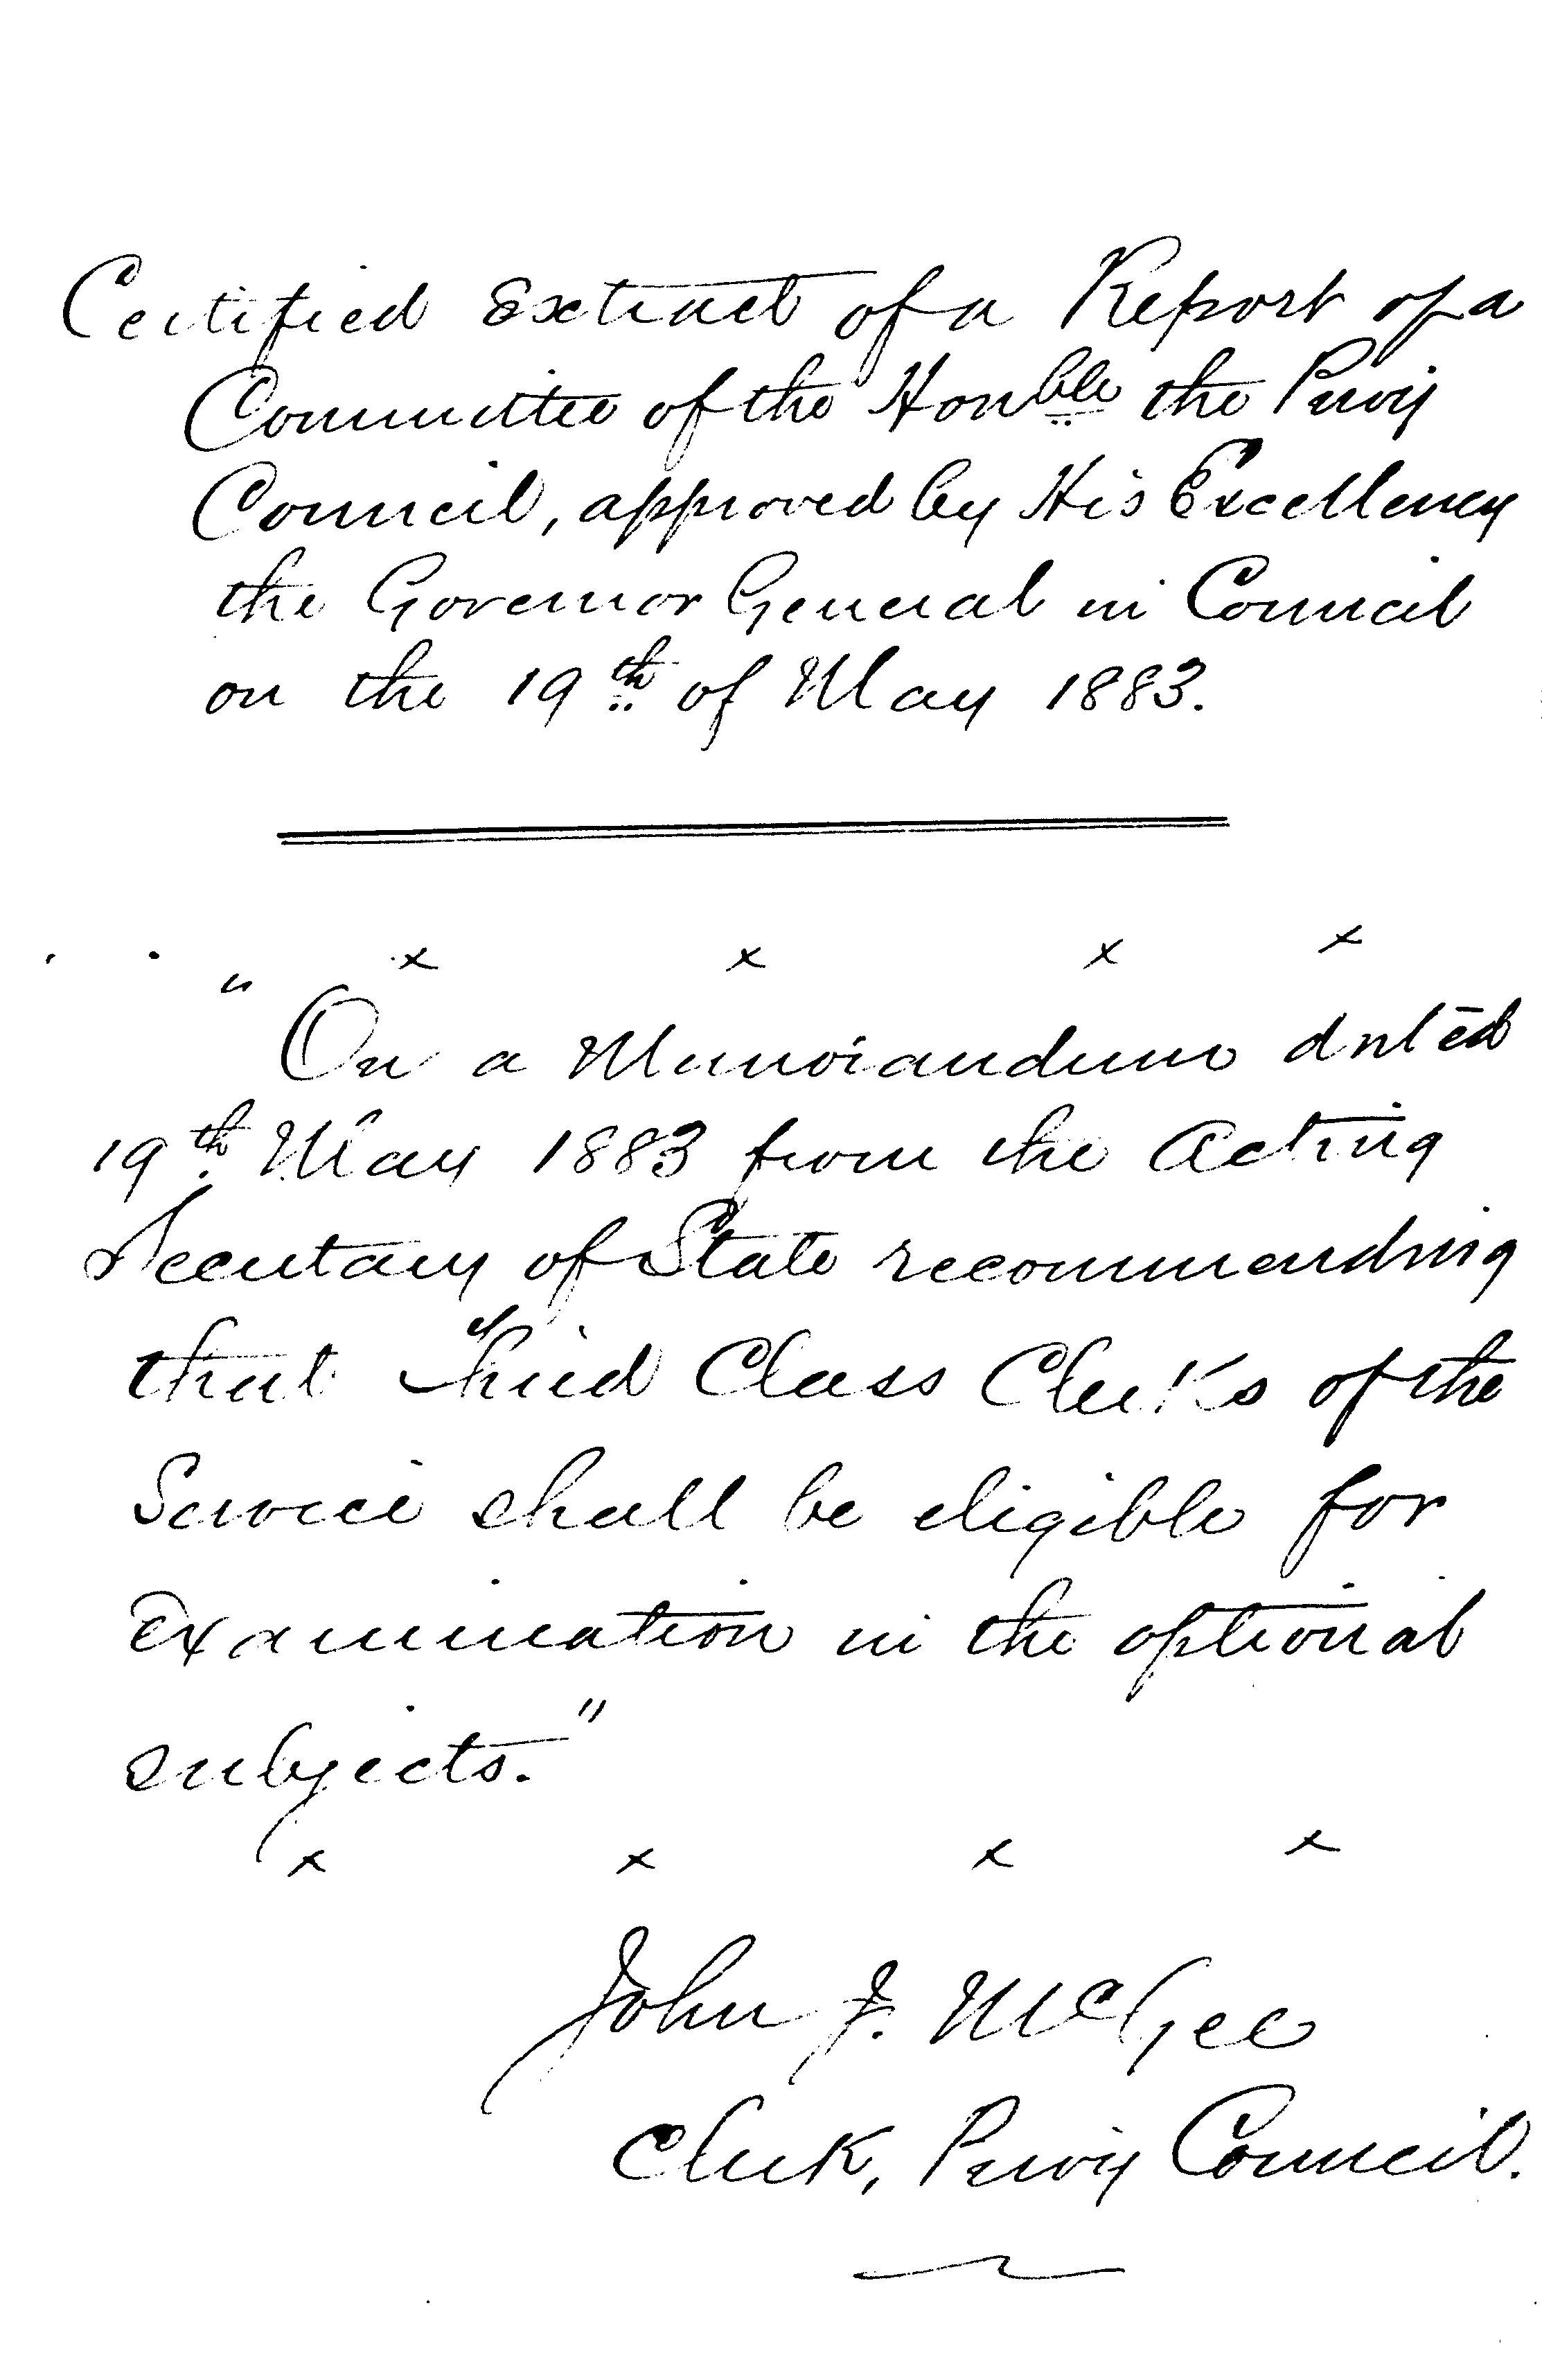 Certified Extract of a Report of a
Committee of the Honble the Privy
Council, approved by His Excellency
the Governor General in Council
on the 19th of May 1883.
x x x x
"On a Memorandum dated
19th May 1883 from the Acting
Secretary of State recommending
that Third Class Clerks of the
Service shall be eligible for
examination in the optional
subjects."
x x x x
John J. McGee
Clerk, Privy Council.